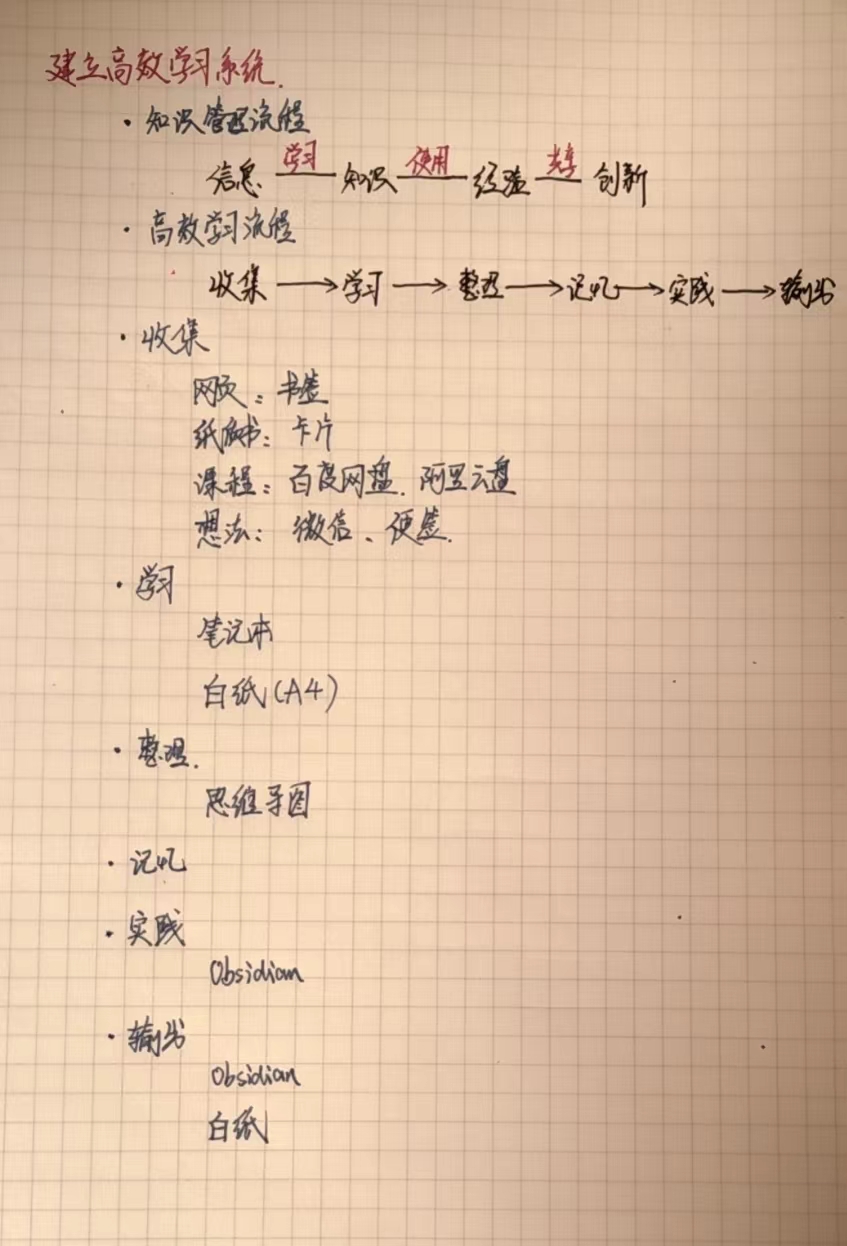 建立高效学习系统.
· 知识管理流程
信息 学习 知识 使用 经验 共享 创新
· 高效学习流程
收集 → 学习 → 整理 → 记忆 → 实践 → 输出
· 收集
网页：书签
纸质书：卡片
课程：百度网盘. 阿里云盘
想法：微信、便签.
· 学习
笔记本
白纸(A4)
· 整理.
思维导图
· 记忆
· 实践
Obsidian
· 输出
Obsidian
白纸